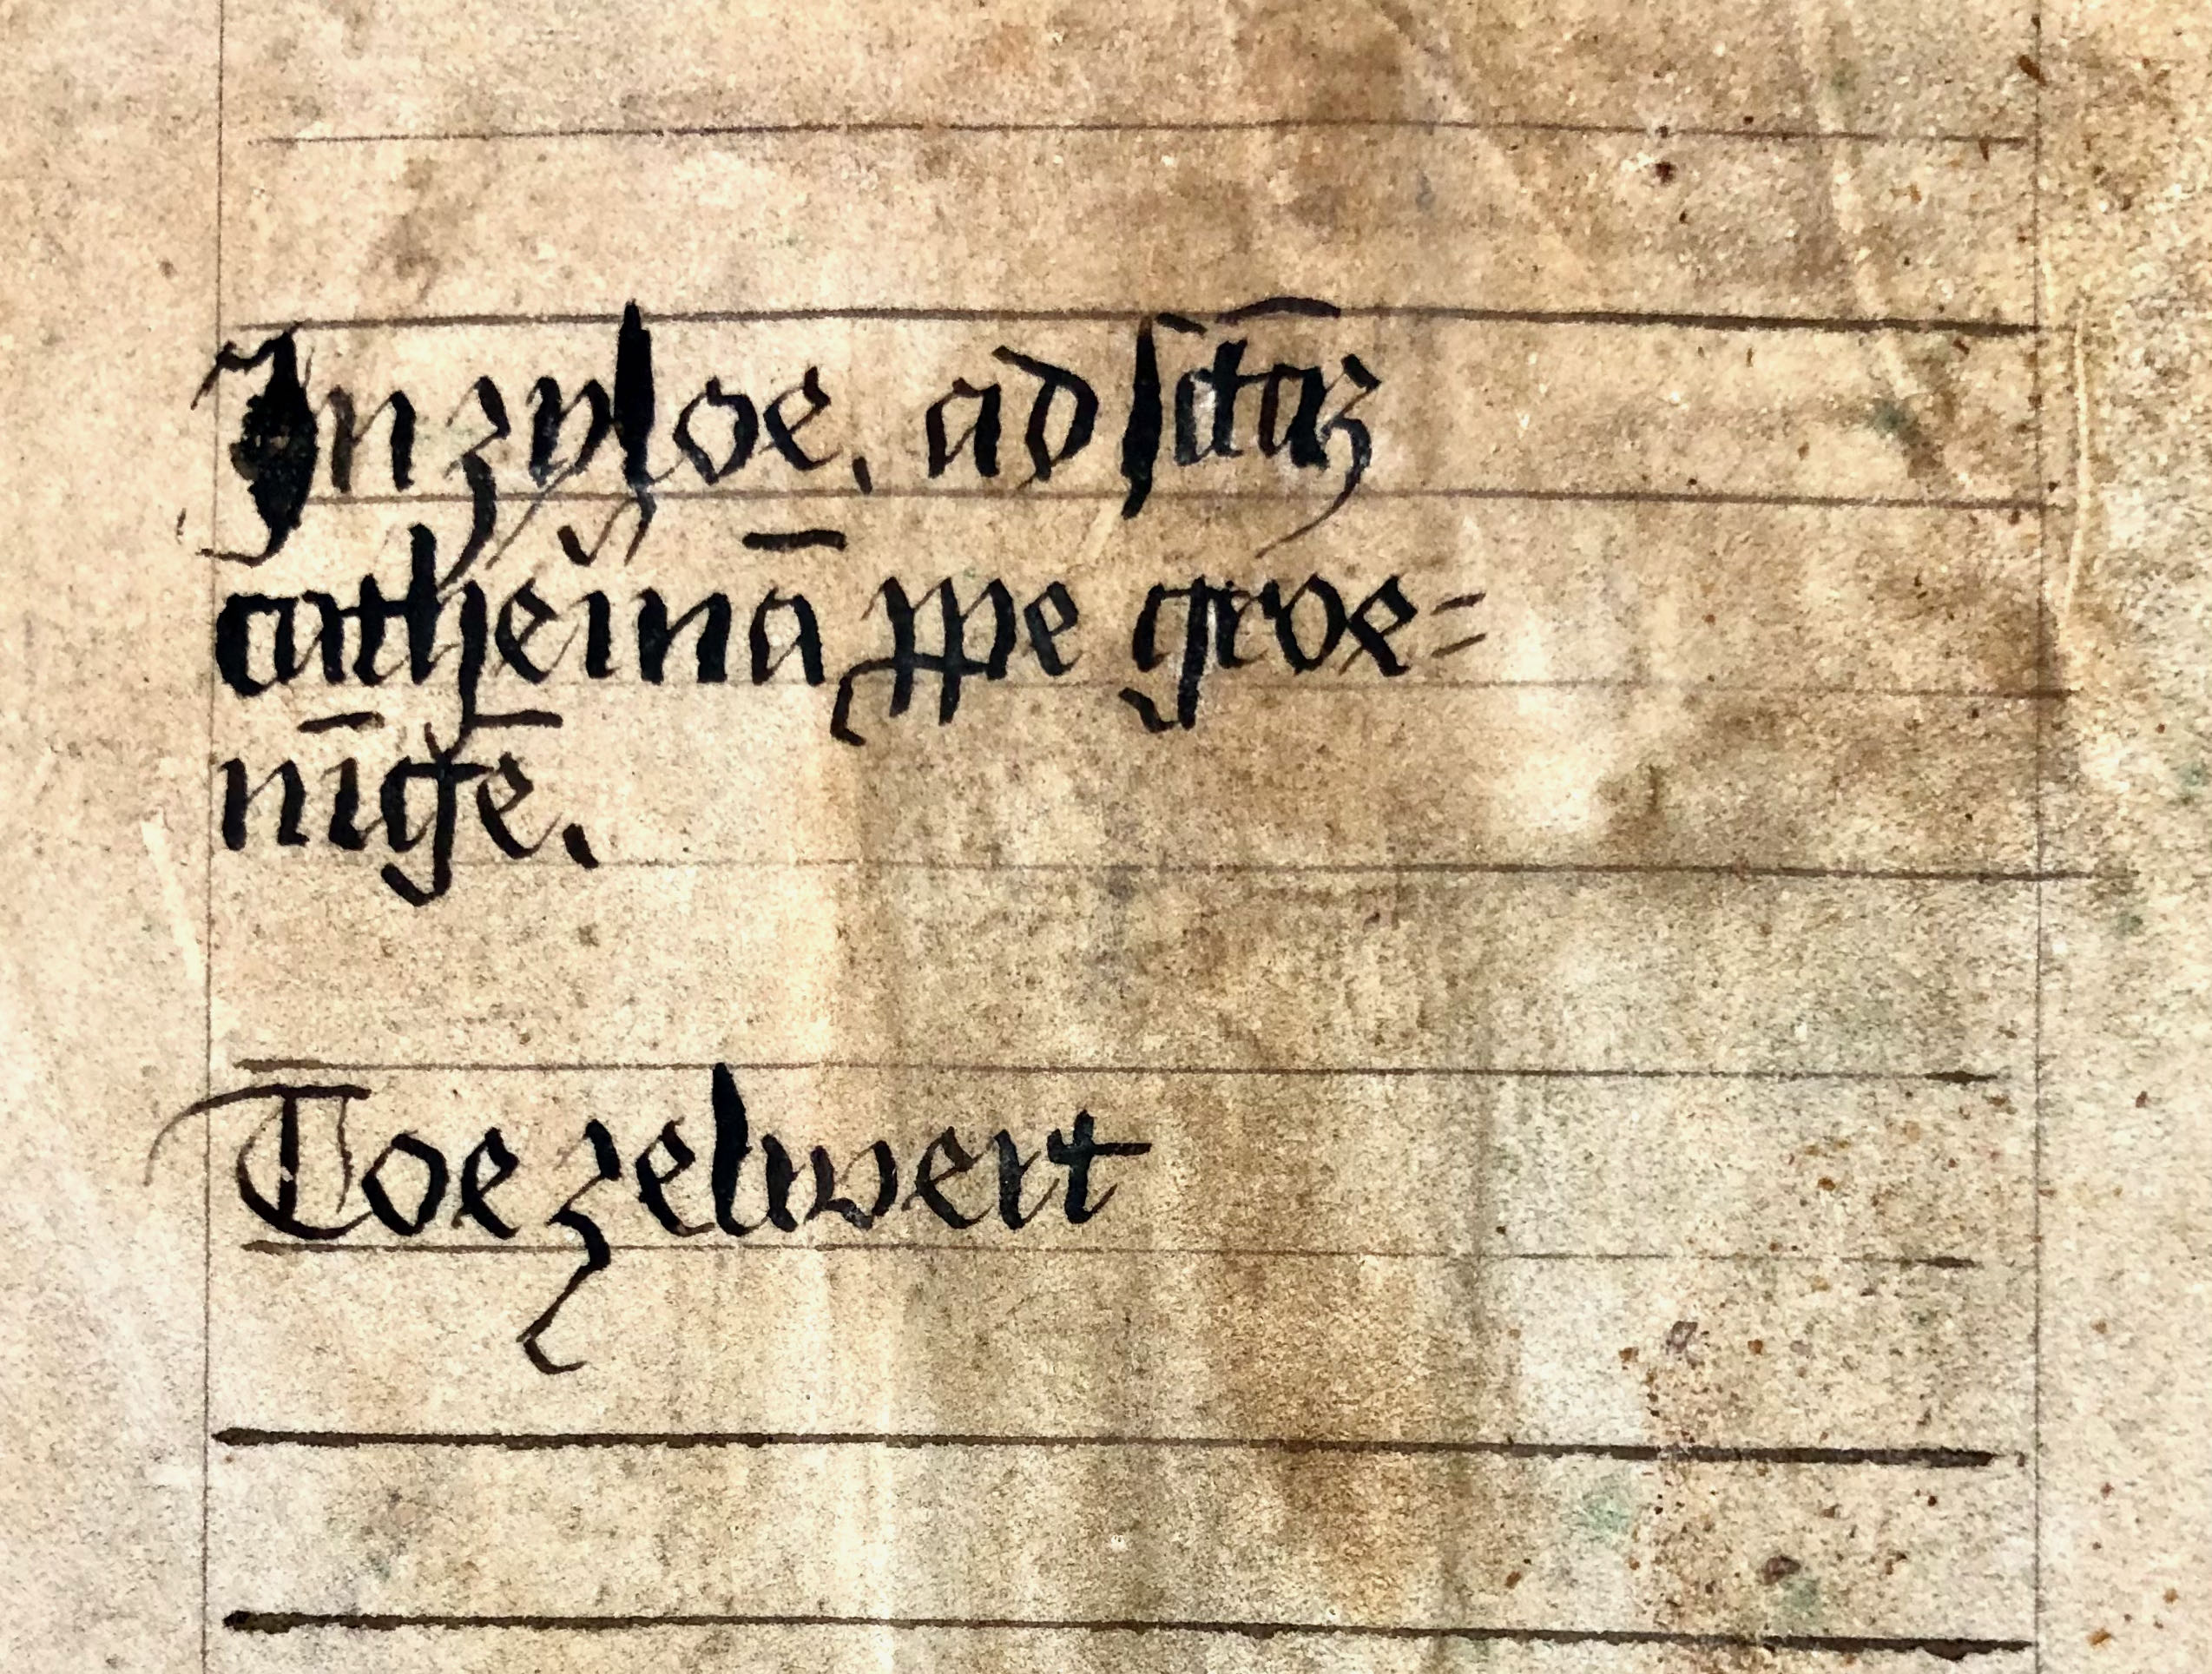 In zyloe, ad sctāʒ
catheinā ꝓpe groe=
nīgē.
Toe zelwert